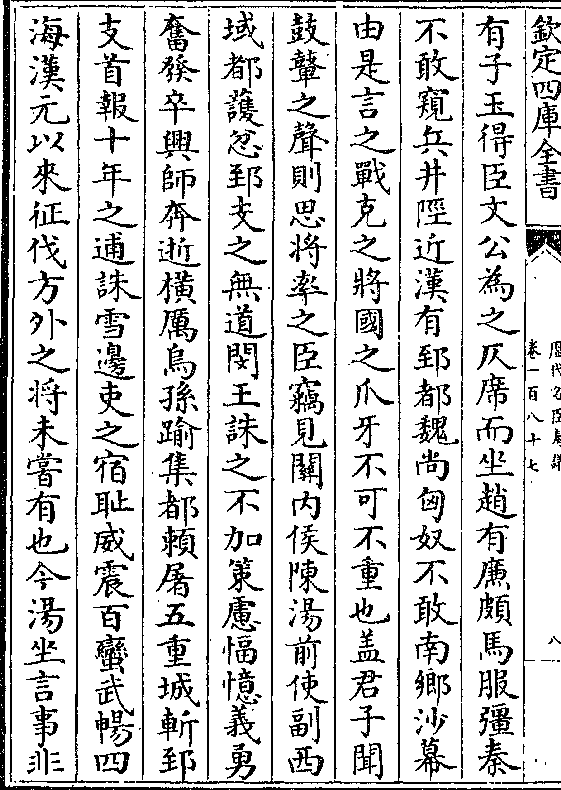 欽定四庫全書
歷代名臣奏議
卷一百八十七
八
有子玉得臣文公為之仄席而坐趙有廉頗馬服彊秦
不敢窺兵井陘近漢有郅都魏尚匈奴不敢南鄉沙幕
由是言之戰克之將國之爪牙不可不重也盖君子聞
鼓鼙之聲則思將率之臣竊見關内侯陳湯前使副西
域都䕶忿郅支之無道閔王誅之不加策慮愊憶義勇
奮發卒興師奔逝橫厲烏孫踰集都頼屠五重城斬郅
支首報十年之逋誅雪邊吏之宿耻威震百蠻武暢四
海漢元以來征伐方外之將未嘗有也今湯坐言事非